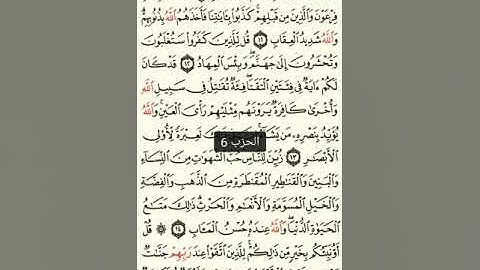 فِرْعَوْنَ وَالَّذِينَ مِن قَبْلِهِمْ كَذَّبُوا بِـَٔايَـٰتِنَا فَأَخَذَهُمُ اللَّهُ بِذُنُوبِهِمْ
وَاللَّهُ شَدِيدُ الْعِقَابِ ١١ قُل لِّلَّذِينَ كَفَرُوا سَتُغْلَبُونَ
وَتُحْشَرُونَ إِلَىٰ جَهَنَّمَ وَبِئْسَ الْمِهَادُ ١٢ قَدْ كَانَ
لَكُمْ ءَايَةٌ فِي فِئَتَيْنِ الْتَقَتَا فِئَةٌ تُقَـٰتِلُ فِي سَبِيلِ اللَّهِ
وَأُخْرَىٰ كَافِرَةٌ يَرَوْنَهُم مِّثْلَيْهِمْ رَأْيَ الْعَيْنِ وَاللَّهُ
يُؤَيِّدُ بِنَصْرِهِ مَن يَشَاءُ لَعِبْرَةً لِّأُولِي
الحزب 6
الْأَبْصَـٰرِ ١٣ زُيِّنَ لِلنَّاسِ حُبُّ الشَّهَوَٰتِ مِنَ النِّسَاءِ
وَالْبَنِينَ وَالْقَنَـٰطِيرِ الْمُقَنطَرَةِ مِنَ الذَّهَبِ وَالْفِضَّةِ
وَالْخَيْلِ الْمُسَوَّمَةِ وَالْأَنْعَـٰمِ وَالْحَرْثِ ذَٰلِكَ مَتَـٰعُ
الْحَيَوٰةِ الدُّنْيَا وَاللَّهُ عِندَهُ حُسْنُ الْمَـَٔابِ ١٤ ۞ قُلْ
أَؤُنَبِّئُكُم بِخَيْرٍ مِّن ذَٰلِكُمْ لِلَّذِينَ اتَّقَوْا عِندَ رَبِّهِمْ جَنَّـٰتٌ